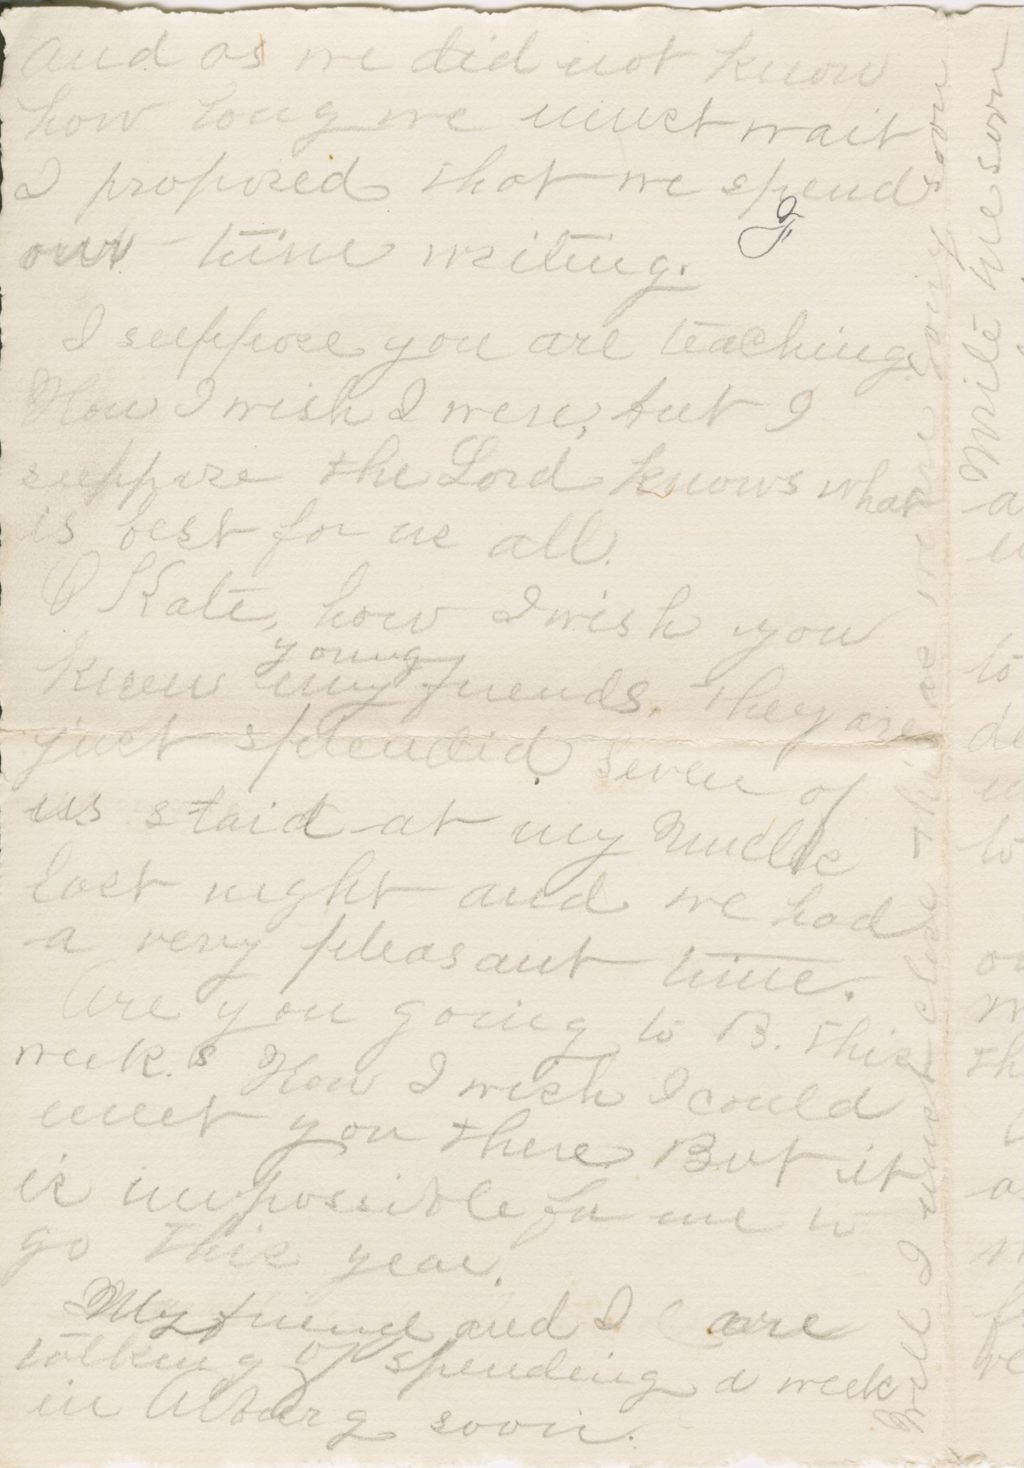 and as we did not know
how long we must wait
I proposed that we spend
our time writing.
I suppose you are teaching.
How I wish I were, but I
suppose the Lord knows what
is best for us all.
O Kate, how I wish you
young
knew my friends. They are
just splendid. Seven of
us staid at my Uncle
last night and we had
a very pleasant time.
Are you going to B. this
week. How I wish I could
meet you there But it
is impossible for me to
go this year.
My friend and I are
talking of spending a week
in Alburg soon.
Well I must close this as we are going soon
Write me soon